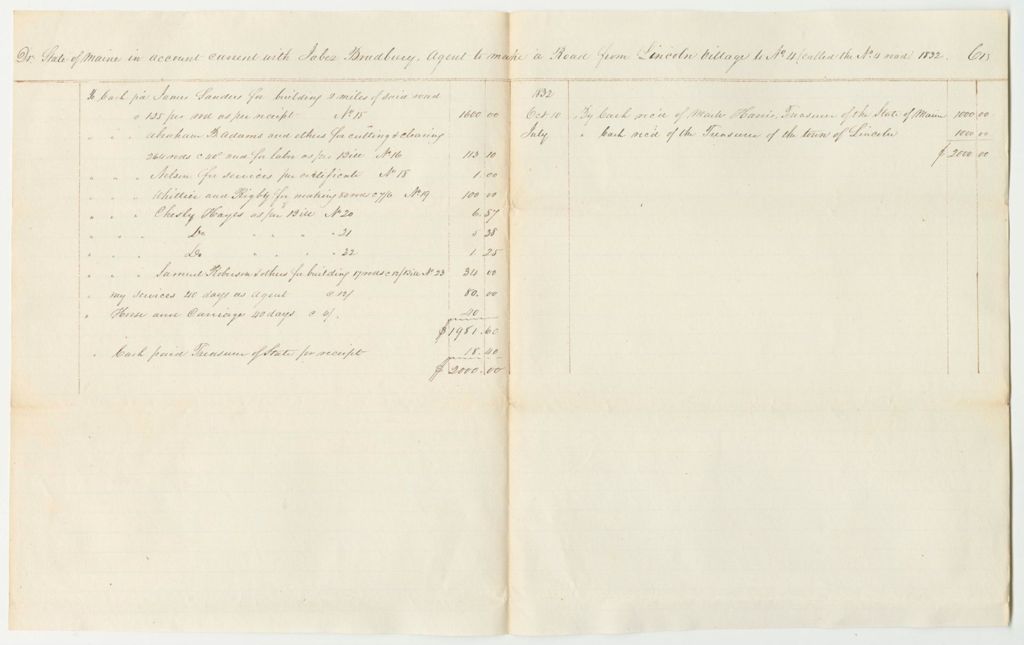 Dr. State of Maine in account current with Jabez Bradbury, Agent to make a Road from Lincoln Village to No 4 (called the No. 4 road 1832. Cr.
To Cash pd James Sanders for building 2 miles of said road
@ 125 per rod as per receipt No 15 1600 00
" " " Abraham B Adams and others for cutting & clearing
264 rods @ 40c and for labor as per Bill No 16 113 10
" " " Nelson for services per certificate No 18 1. 00
" " " Whittier and Rigby for making road No 19 100 00
" " " Chesly Hayes as per Bill No 20 6. 57
" " " Do " " " " 21 5 28
" " " Do " " " " 22 1. 25
" " " Samuel Robinson & others for building 17 rods Bill No 23 34 00
" my services 40 days as Agent @ 12/ 80. 00
" Horse and Carriage 40 days @ 6/. 40
$1981. 60
" Cash paid Treasurer of State per receipt 18. 40
$2000. 00
1832
Oct. 10 By Cash rec'd of Mark Harris, Treasurer of the State of Maine 1000 00
July " Cash rec'd of the Treasurer of the town of Lincoln 1000 00
$ 2000 00